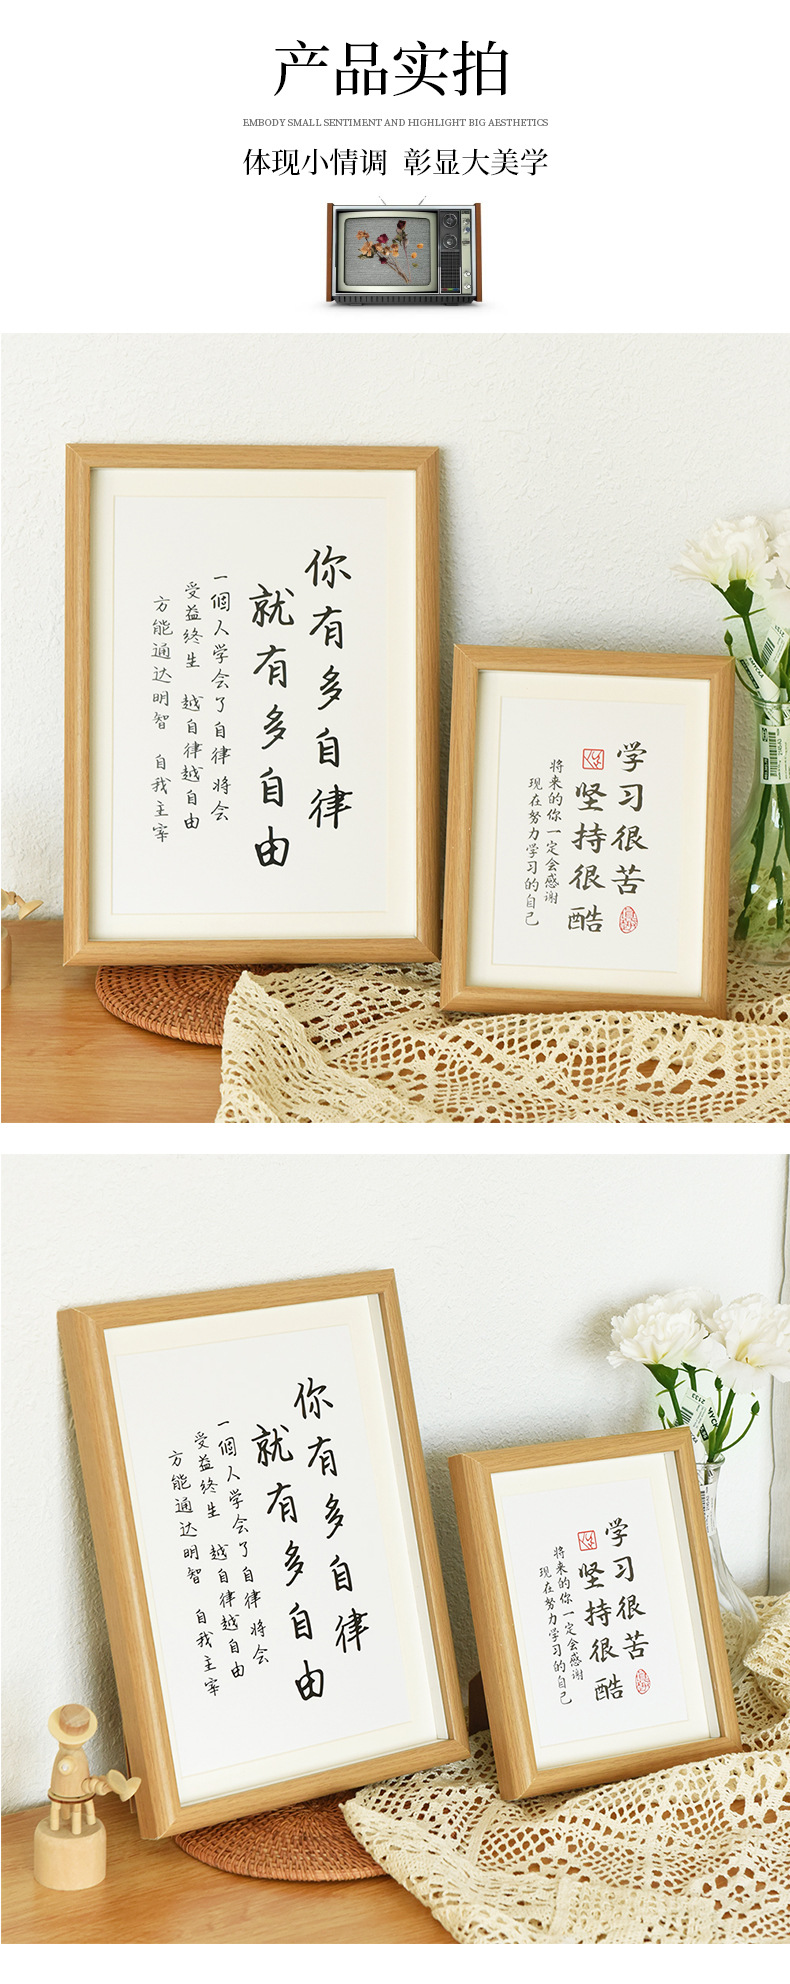 产品实拍
EMBODY SMALL SENTIMENT AND HIGHLIGHT BIG AESTHETICS
体现小情调 彰显大美学
你有多自律
就有多自由
一個人学会了自律将会
受益终生 越自律越自由
方能通达明智 自我主宰
学习很苦
坚持很酷
将来的你一定会感谢
现在努力学习的自己
你有多自律
就有多自由
一個人学会了自律将会
受益终生 越自律越自由
方能通达明智 自我主宰
学习很苦
坚持很酷
将来的你一定会感谢
现在努力学习的自己